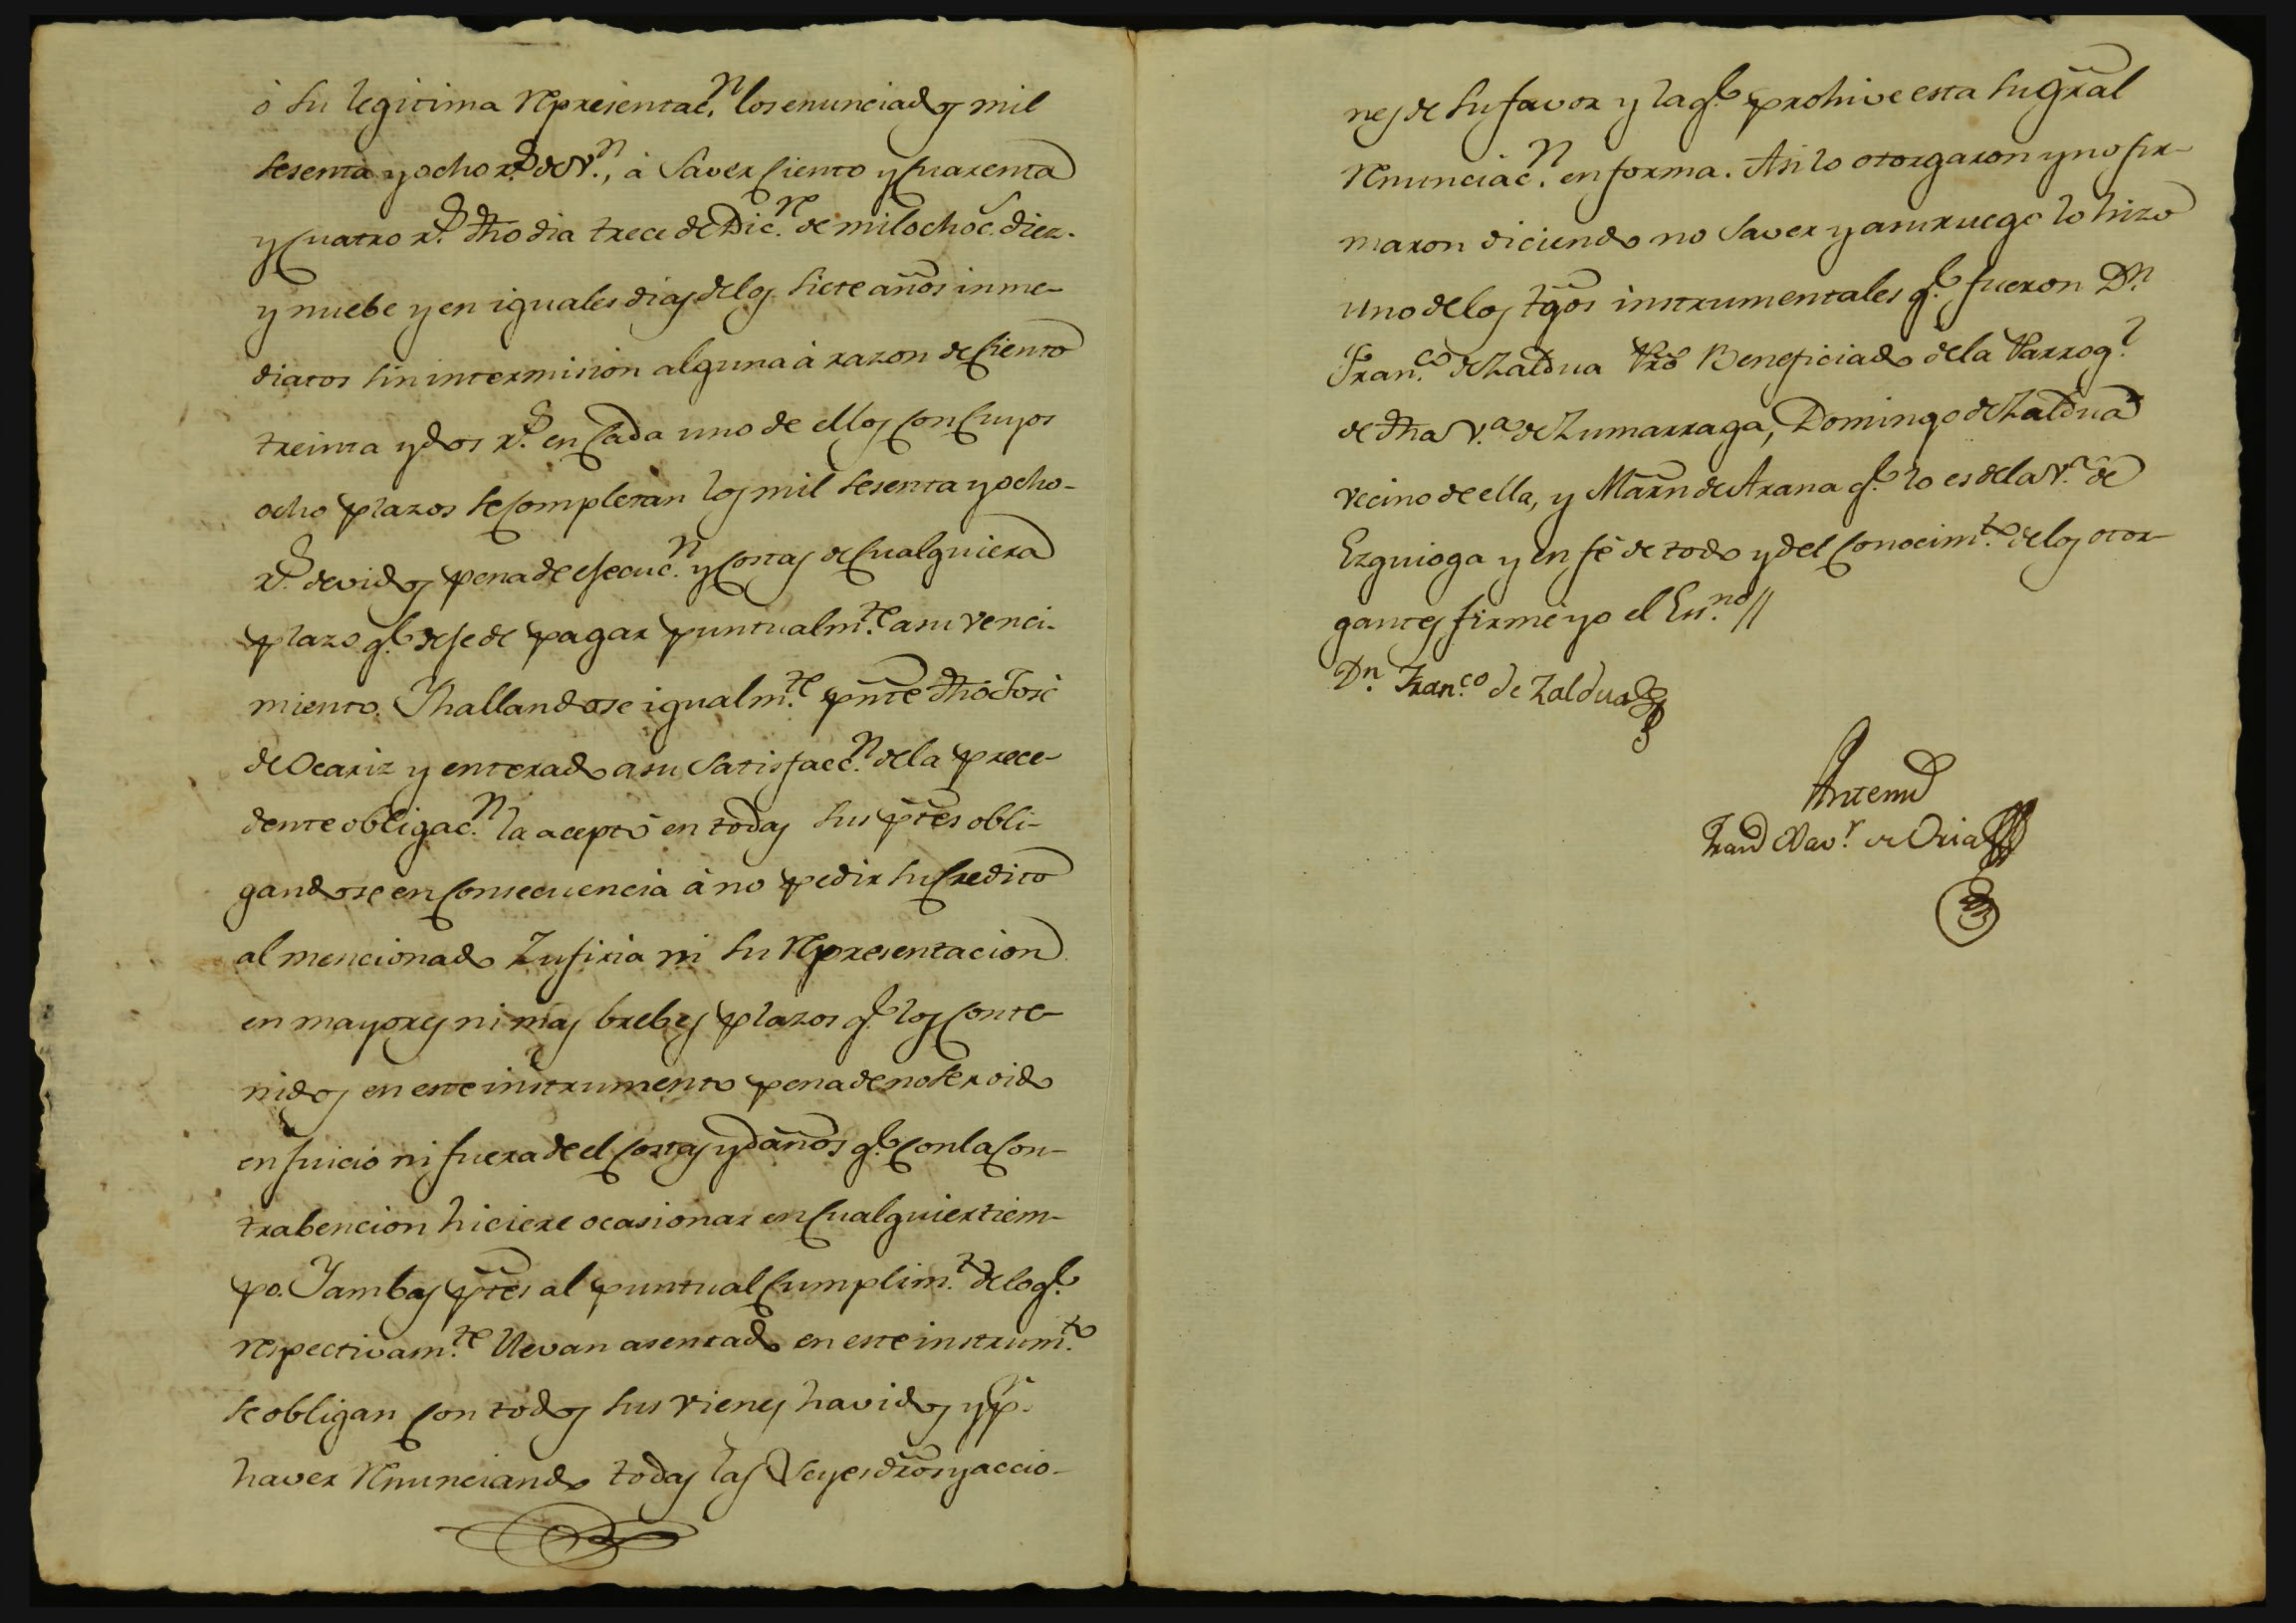 ò su legitima representac.n los enunciados mil
sesenta y ocho r.s de V.n, à saver ciento y cuarenta
y cuatro r.s dho dia trece de Dic.re de mil ochoc.s diez-
y nuebe y en iguales dias de los siete años inme-
diatos sin intermision alguna à razon de ciento
treinta y dos r.s en cada uno de ellos con cuyos
ocho plazos se completan los mil sesenta y ocho-
r.s devidos pena de ejecuc.n y costas de cualquiera
plazo q.e deje de pagar puntualm.te a su venci-
miento. Y hallandose igualm.te pnte dho José
de Ocariz y enterado a su satisfacc.n de la prece-
dente obligac.n la aceptó en todas sus ptes obli-
gandose en consecuencia à no pedir su credito
al mencionado Zufiria ni su representacion
en mayores ni mas brebes plazos q.e los conte-
nidos en este instrumento pena de no ser oido
en juicio ni fuera de el costas y daños q.e con la con-
trabencion hiciere ocasionar en cualquier tiem-
po. Y ambas ptes al puntual cumplim.to de lo q.e
respectivam.te llevan asentado en este instrum.to
se obligan con todos sus vienes havidos y p.r
haver renunciando todas las Leyes dros y accio-
nes de su favor y la q.e prohive esta su gral
renunciac.n en forma. Asi lo otorgaron y no fir-
maron diciendo no saver y a su ruego lo hizo
uno de los tgos instrumentales q.e fueron D.n
Fran.co de Zaldua Pro Beneficiado de la Parroq.l
de dha V.a de Zumarraga, Domingo de Zaldua
vecino de ella, y Marn de Arana q.e lo es de la V.a de
Ezquioga y en fé de todo y del conocim.to de los otor-
gantes firmé yo el Es.no //
D.n Fran.co de Zaldua
Antemi
Fran.co Xav.r de Oria